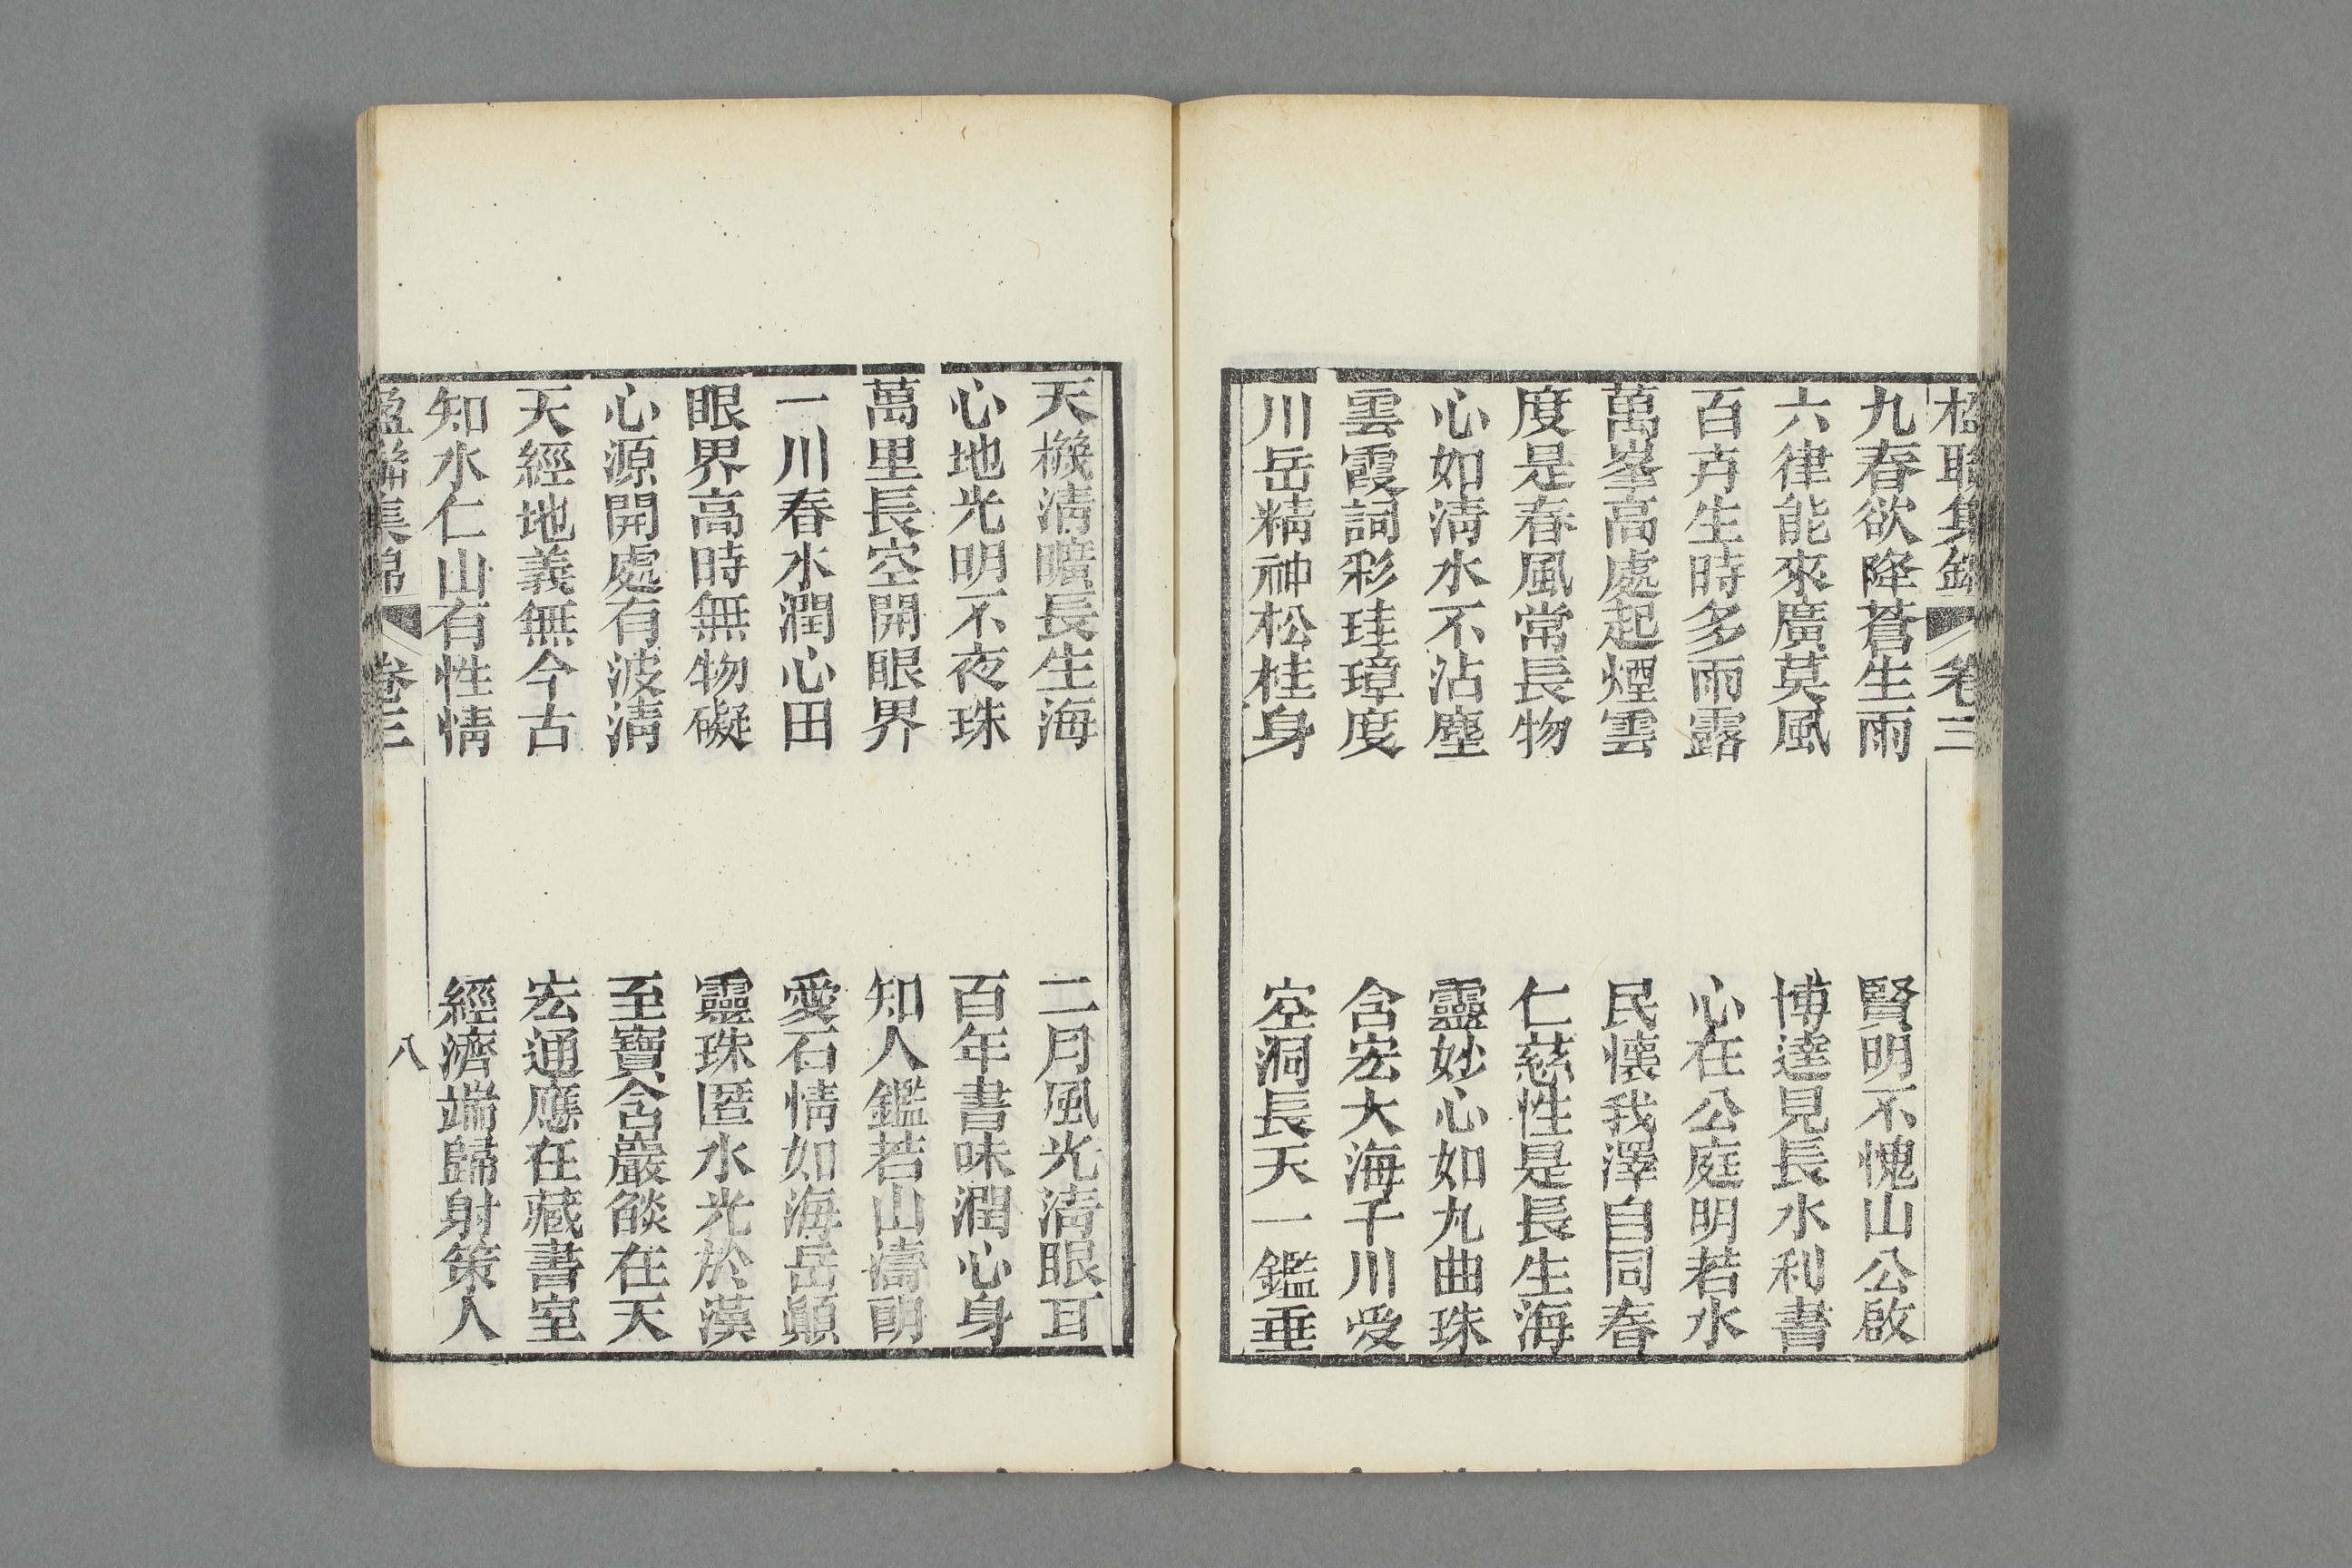 九春欲降蒼生雨　賢明不愧山公啟
六律能來廣莫風　博達見長水利書
百卉生時多雨露　心在公庭明若水
萬峯高處起煙雲　民懷我澤自同春
度是春風常長物　仁慈性是長生海
心如淸水不沾塵　靈妙心如九曲珠
雲霞詞彩珪璋度　含宏大海千川受
川岳精神松桂身　空洞長天一鑑垂
天機淸曠長生海　二月風光淸眼耳
心地光明不夜珠　百年書味潤心身
萬里長空開眼界　知人鑑若山濤朗
一川春水潤心田　愛石情如海岳顚
眼界高時無物礙　靈珠匿水光於漢
心源開處有波淸　至寶含巖燄在天
天經地義無今古　宏通應在藏書室
知水仁山有性情　經濟端歸射策人
卷三
八